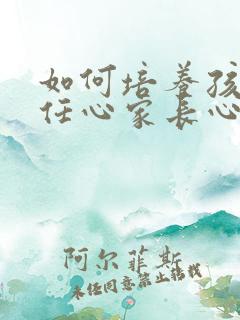 如何培养孩
任心家长心
阿尔菲斯
未经同意禁止转载